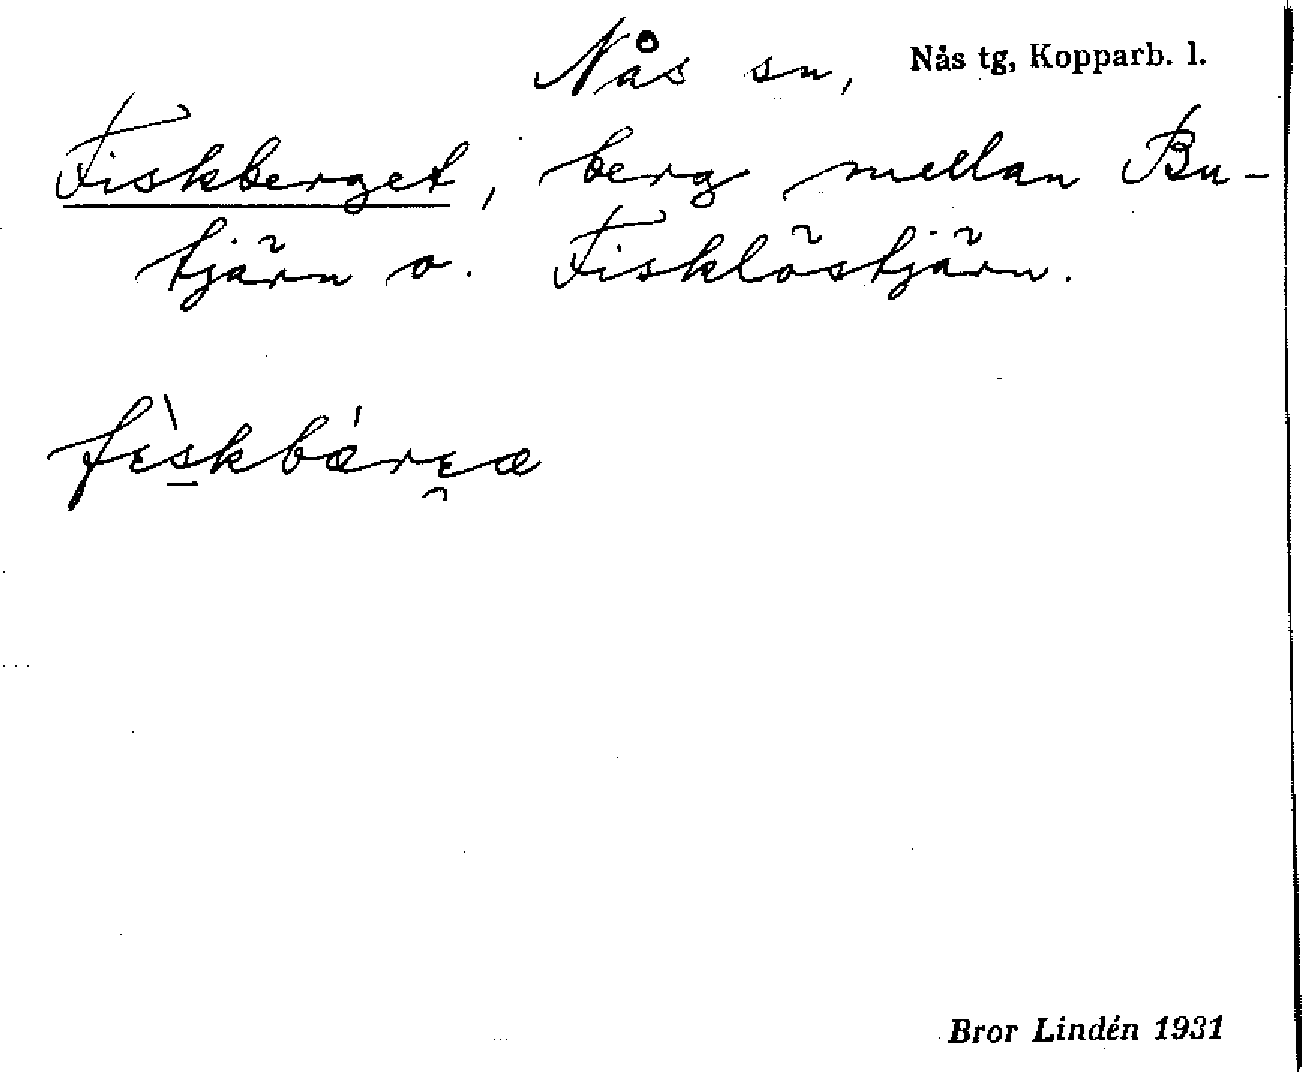 Nås sn, Nås tg, Kopparb. l.
Fiskberget, berg mellan Bu-
tjärn o. Fisklöstjärn.
fɛ̀skbǽrɛ̯æ
Bror Lindén 1931